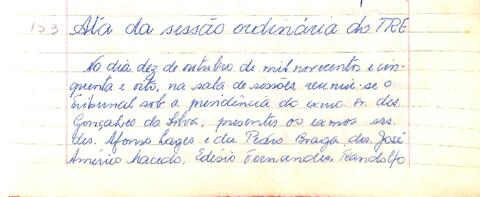 153 Ata da sessão ordinária do TRE
No dia dez de outubro de mil novecentos e cin-
quenta e oito, na sala de sessões reuniu-se o
Tribunal sob a presidência do exmo sr. des.
Gonçalves da Silva, presentes os exmos srs.
des. Afonso Lages e des. Pedro Braga, drs. José
Américo Macedo, Edésio Fernandes, Randolfo